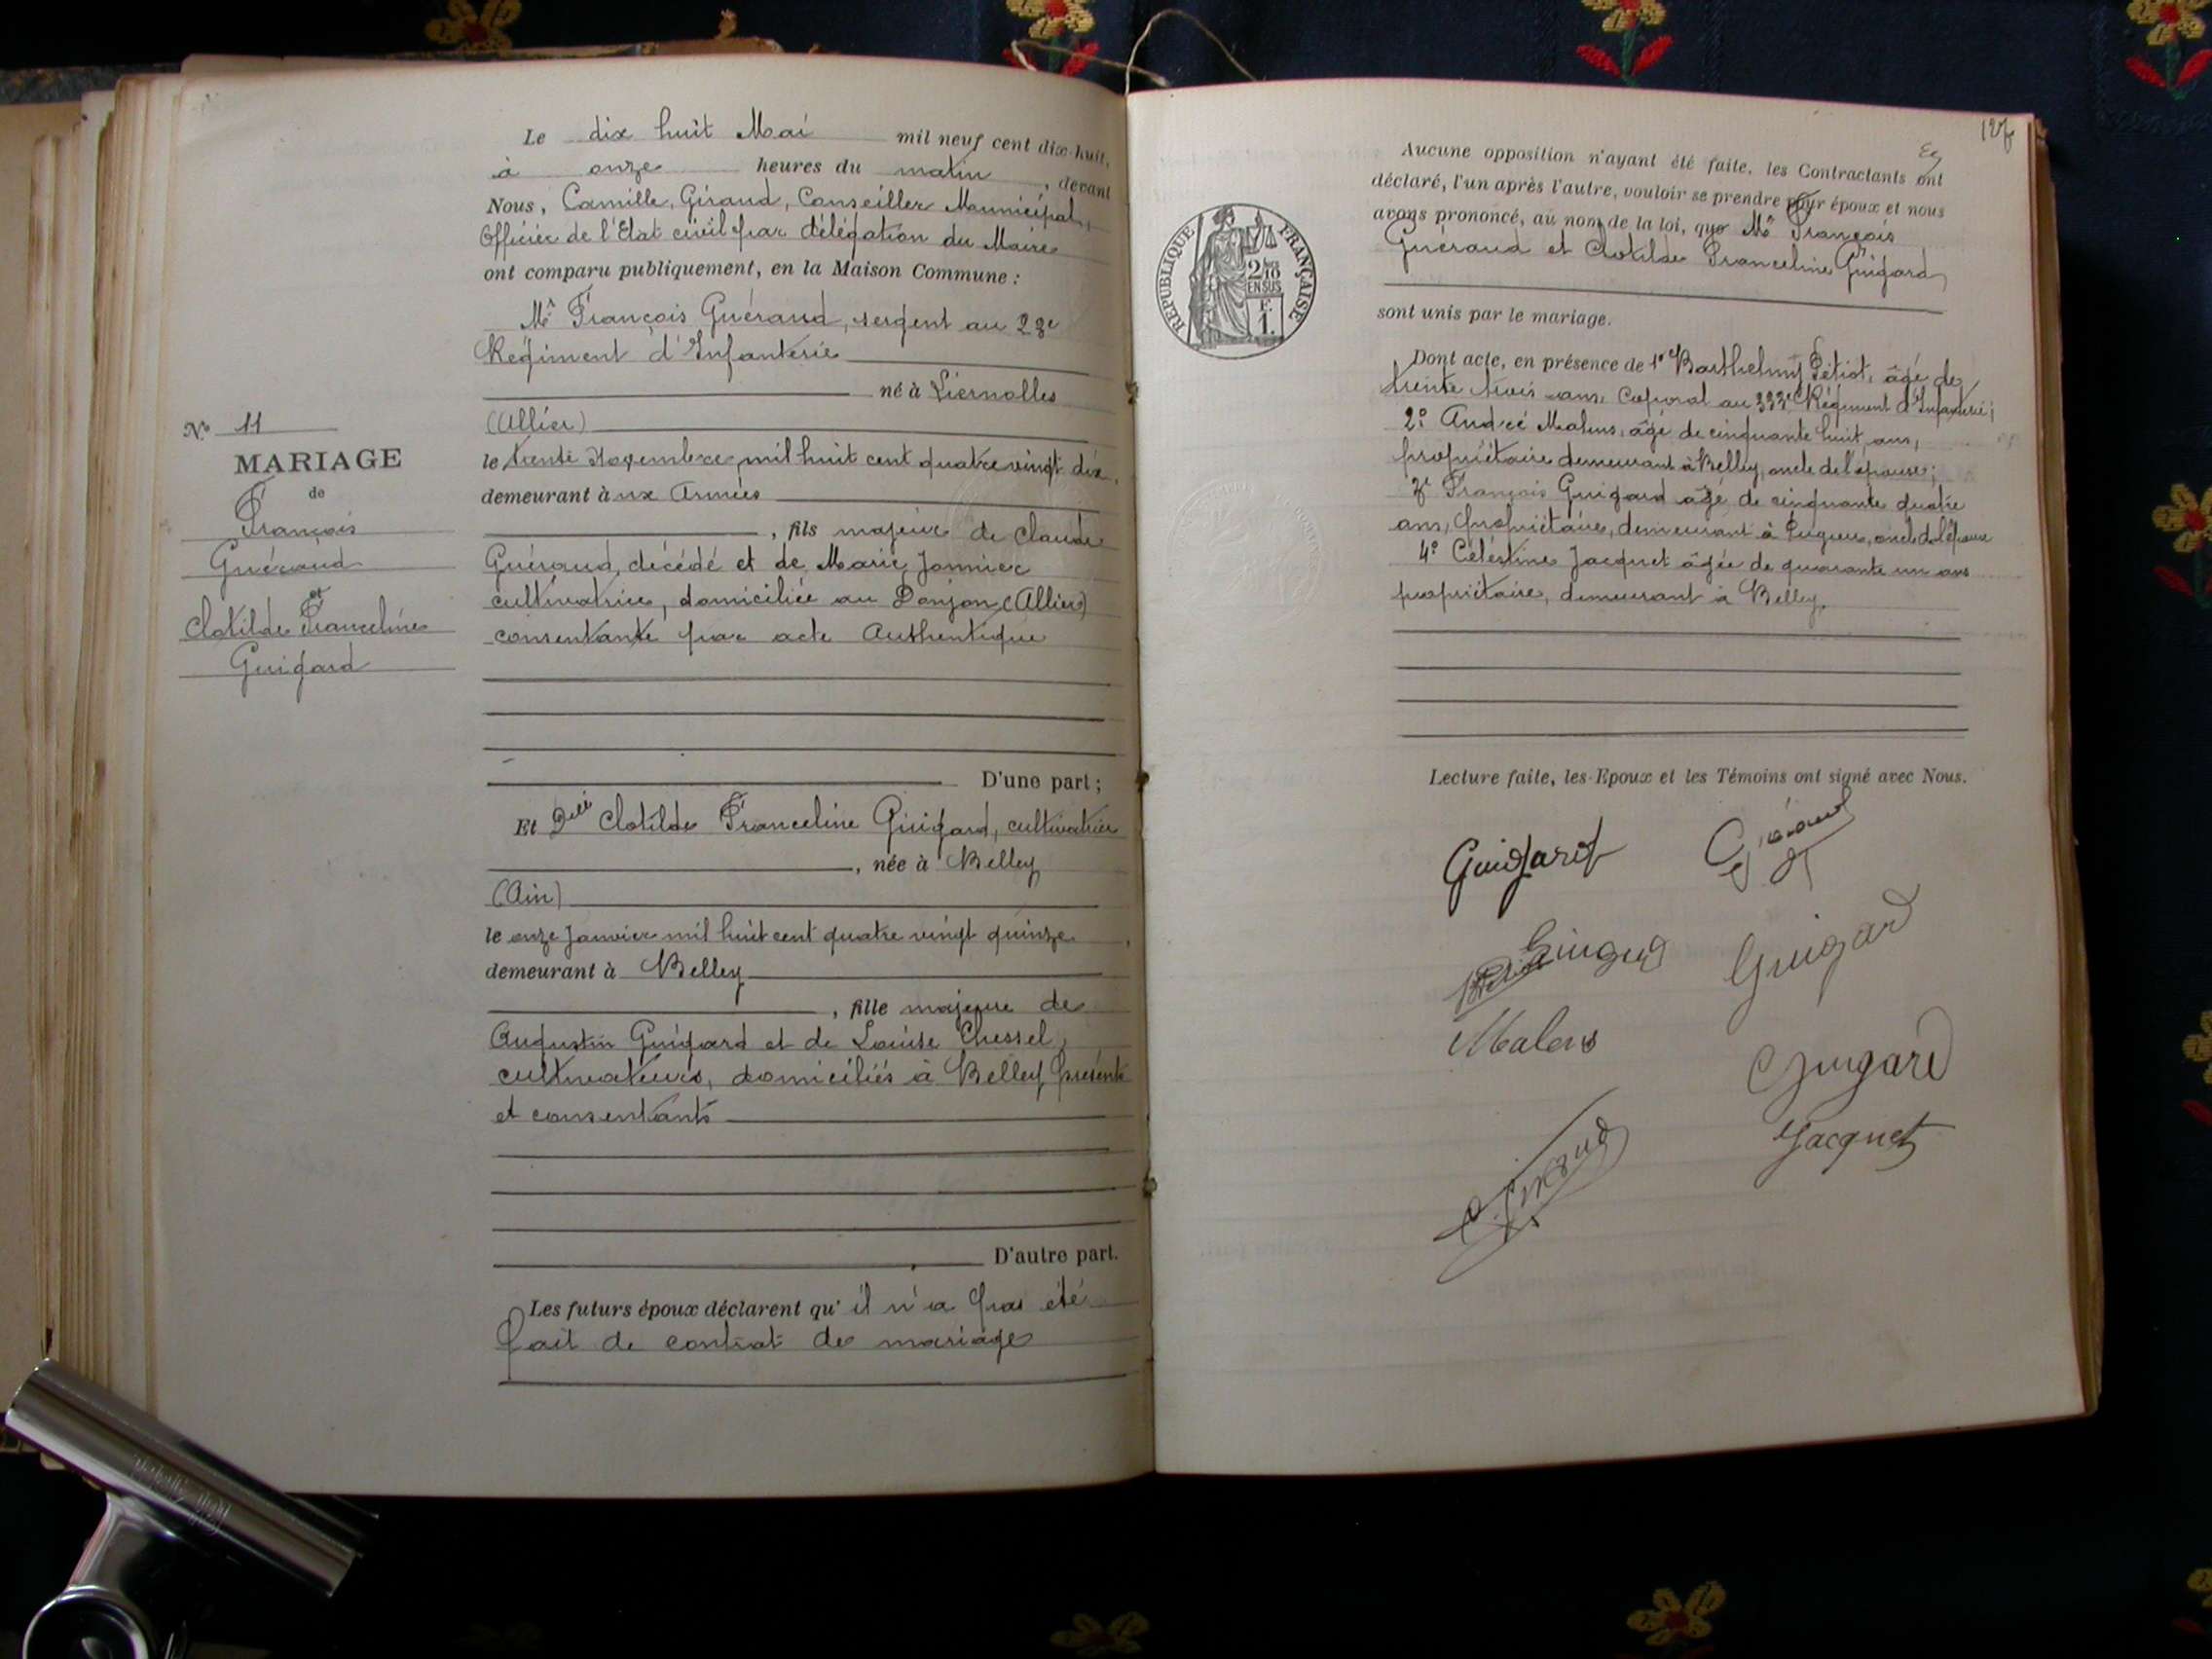 Le dix huit Mai mil neuf cent dix-huit,
à onze heures du matin, devant
Nous, Camille, Giraud, Conseiller Municipal,
Officier de l'Etat civil par délégation du Maire
ont comparu publiquement, en la Maison Commune :
Mr François Guéraud, sergent au 23e
Régiment d'Infanterie
né à Liernolles
(Allier)
le trente Novembre mil huit cent quatre vingt dix,
demeurant à ux Armées
, fils majeur de Claude
Guéraud, décédé et de Marie Jonnier
cultivatrice, domiciliée au Donjon (Allier)
consentante par acte Authentique
D'une part ;
Et Delle Clotilde Franceline Guigard, cultivatrice
, née à Belley
(Ain)
le onze Janvier mil huit cent quatre vingt quinze,
demeurant à Belley
, fille majeure de
Augustin Guigard et de Louise Chessel,
cultivateurs, domiciliés à Belley présents
et consentants
D'autre part.
Les futurs époux déclarent qu' il n'a pas été
fait de contrat de mariage
No 11
MARIAGE
de
François
Guéraud
et
Clotilde Franceline
Guigard
127
Aucune opposition n'ayant été faite, les Contractants ont
déclaré, l'un après l'autre, vouloir se prendre pour époux et nous
avons prononcé, au nom de la loi, que Mr François
Guéraud et Clotilde Franceline Guigard
sont unis par le mariage.
Dont acte, en présence de 1° Barthelmy Pétiot, âgé de
trente trois ans, Caporal au 333e Régiment d'Infanterie ;
2° André Malens, âgé de cinquante huit ans,
propriétaire demeurant à Belley, oncle de l'épouse ;
3e François Guigard âgé de cinquante quatre
ans, propriétaire, demeurant à Pugieu, oncle de l'épouse
4° Céléstine Jacquet âgée de quarante un ans
propriétaire, demeurant à Belley.
RÉPUBLIQUE FRANÇAISE
2/10
EN SUS
F.
1.
Lecture faite, les Epoux et les Témoins ont signé avec Nous.
Guigard
Guéraud
Guigard
Malens
Guigard
Jacquet
C. Giraud